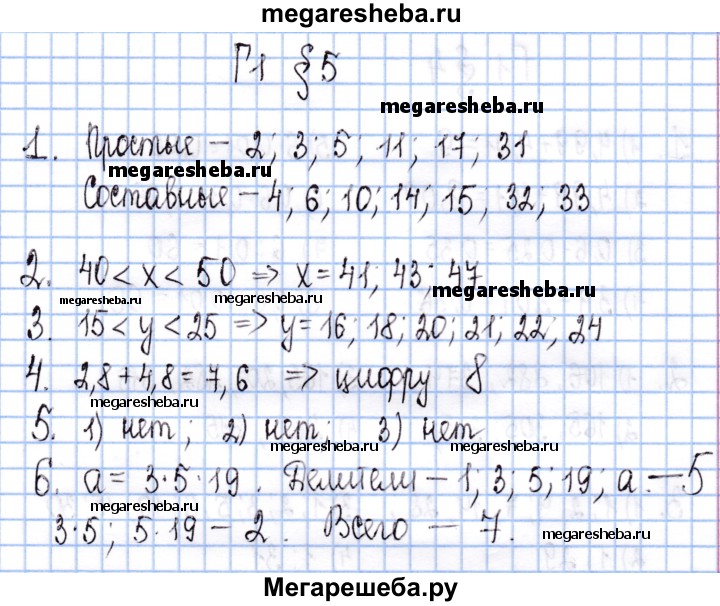 megaresheba.ru
Г1 § 5
megaresheba.ru
1. Простые – 2; 3; 5; 11; 17; 31
megaresheba.ru
Составные – 4; 6; 10; 14; 15; 32; 33
2. 40 < x < 50 => x = 41; 43; 47
megaresheba.ru megaresheba.ru megaresheba.ru
3. 15 < y < 25 => y = 16; 18; 20; 21; 22; 24
4. 2,8 + 4,8 = 7,6 => цифру 8
megaresheba.ru megaresheba.ru
5. 1) нет; 2) нет; 3) нет
megaresheba.ru megaresheba.ru
6. a = 3·5·19. Делители – 1; 3; 5; 19; a. – 5
megaresheba.ru megaresheba.ru
3·5; 5·19 – 2. Всего – 7.
megaresheba.ru
Мегарешеба.ру